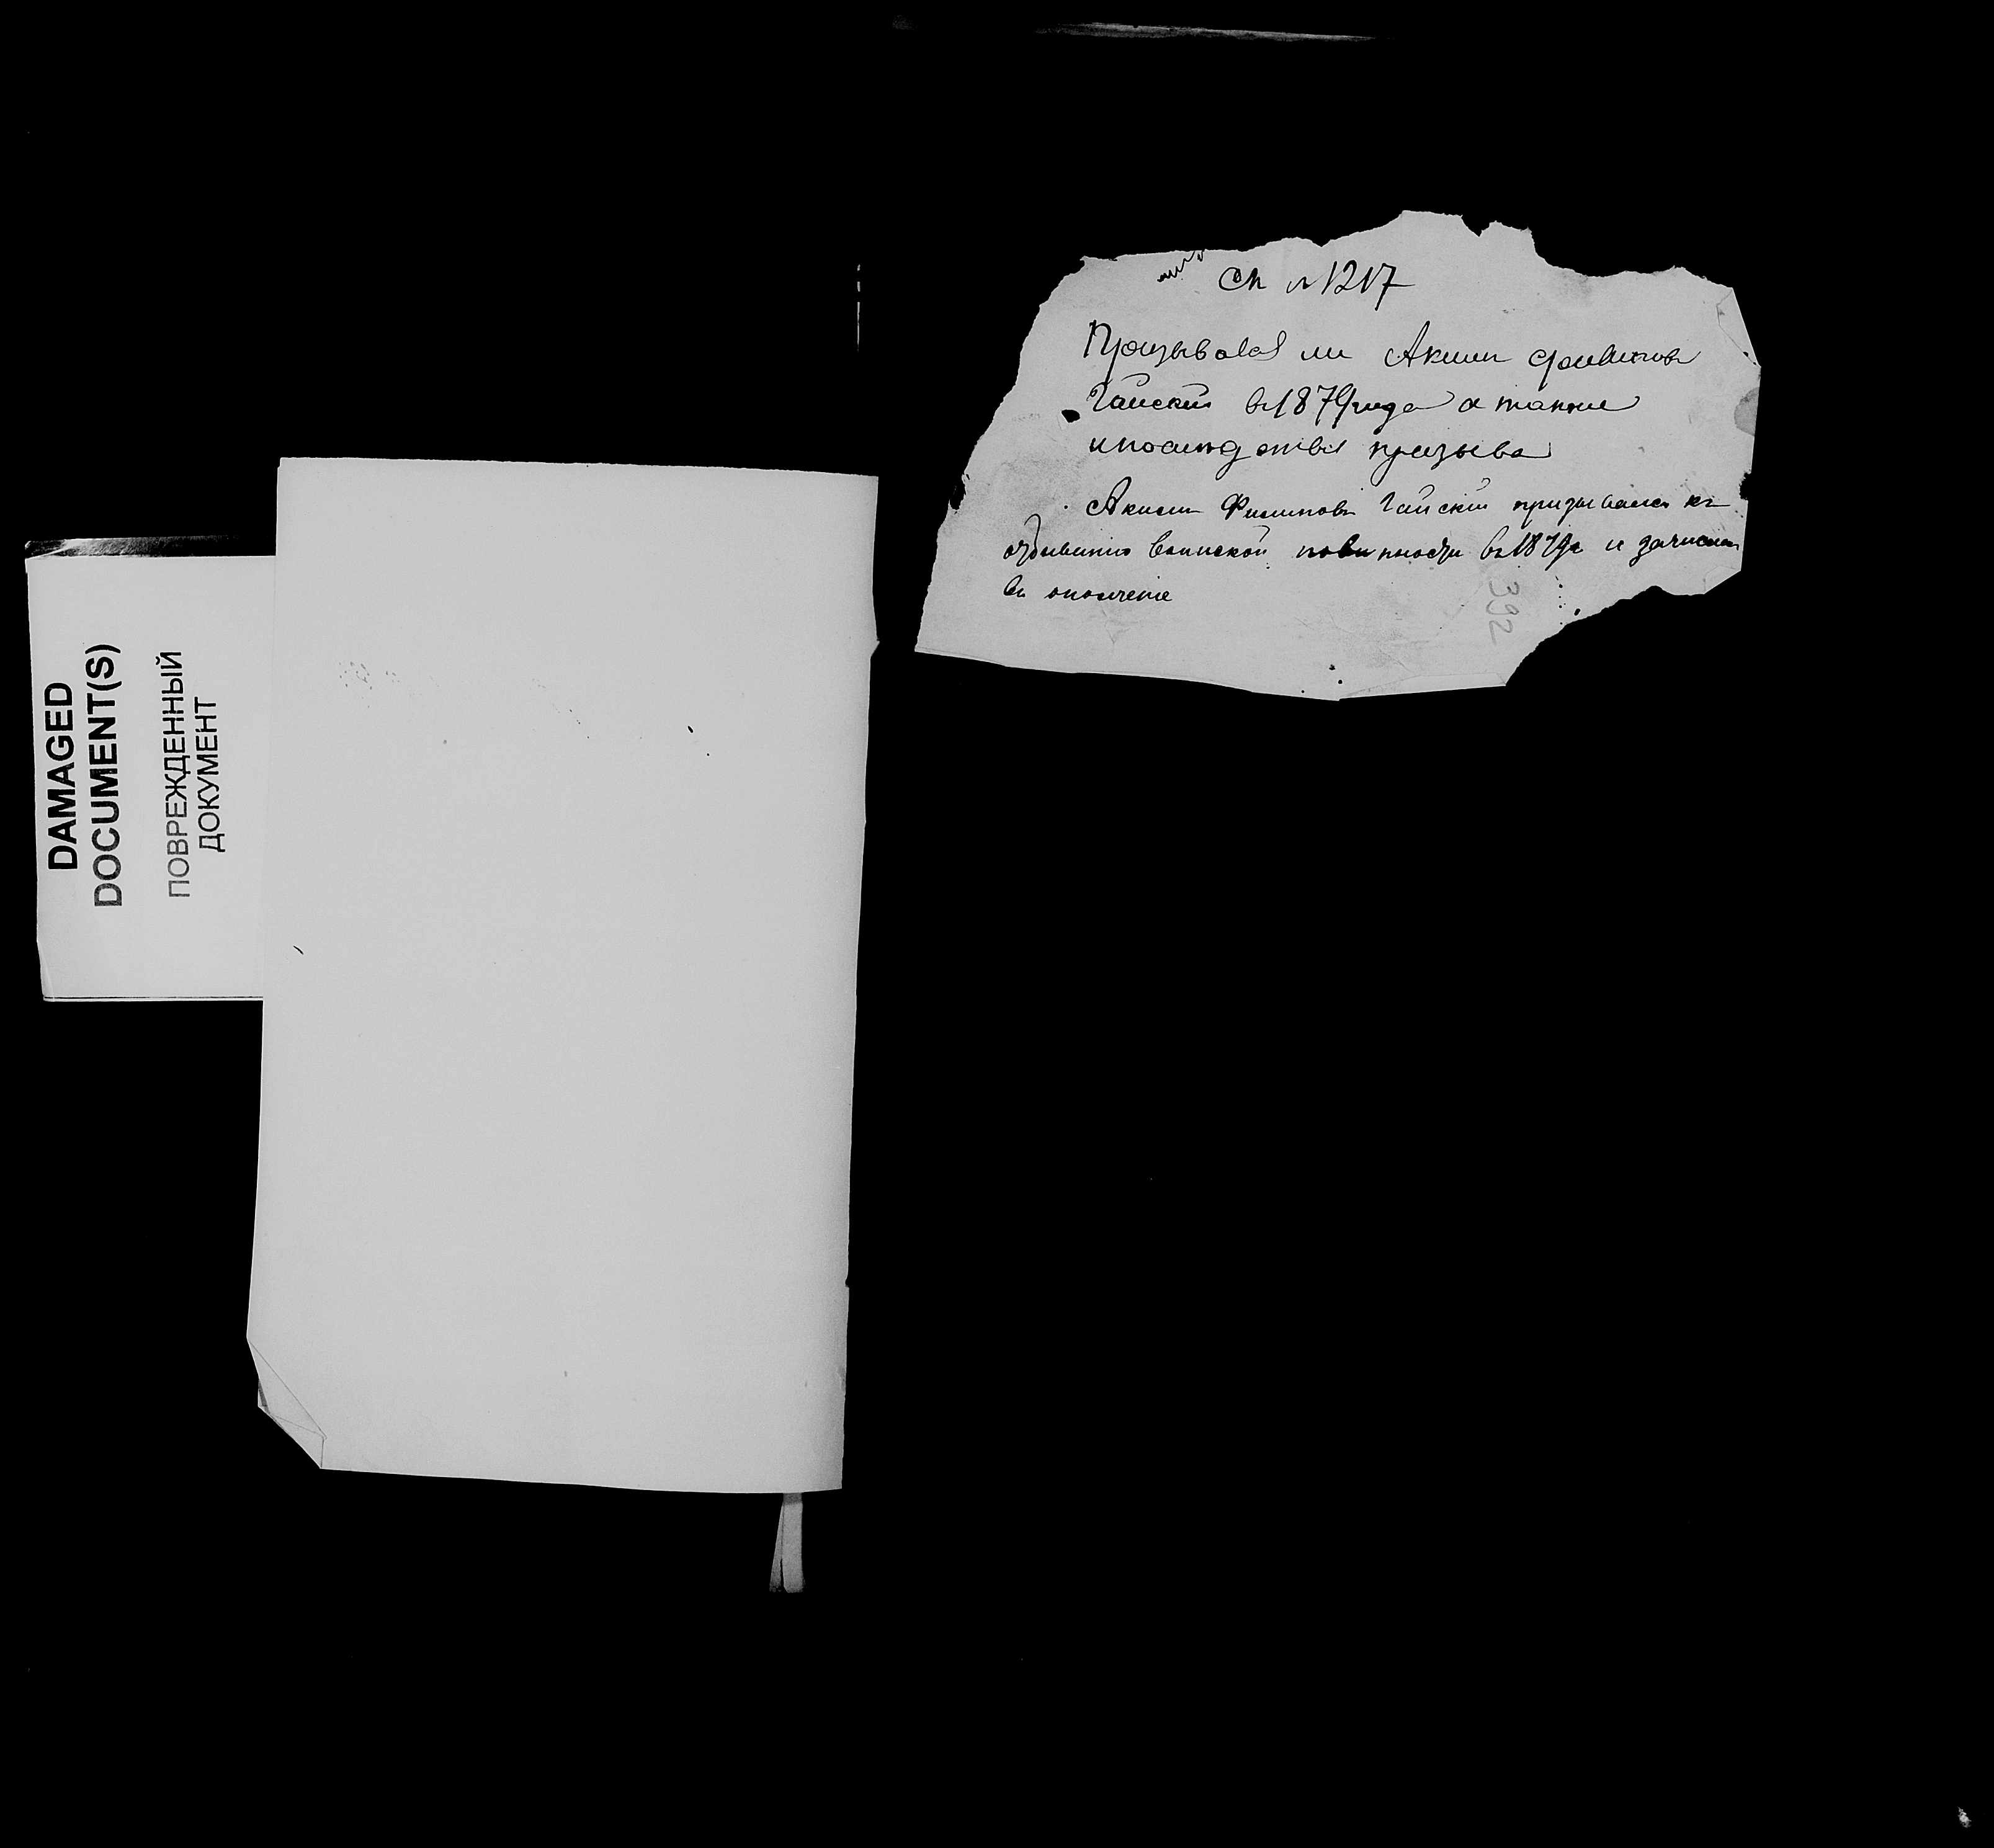 DAMAGED
DOCUMENT(S)
ПОВРЕЖДЕННЫЙ
ДОКУМЕНТ
№ 1217
Призывался ли Аким Филиповъ
Гайский въ 1879 года а также
и последствия призыва
Акимъ Филиповъ Гайский призывался къ
отбыванию воинской повинности въ 1879 г и зачисленъ
въ ополчение
392